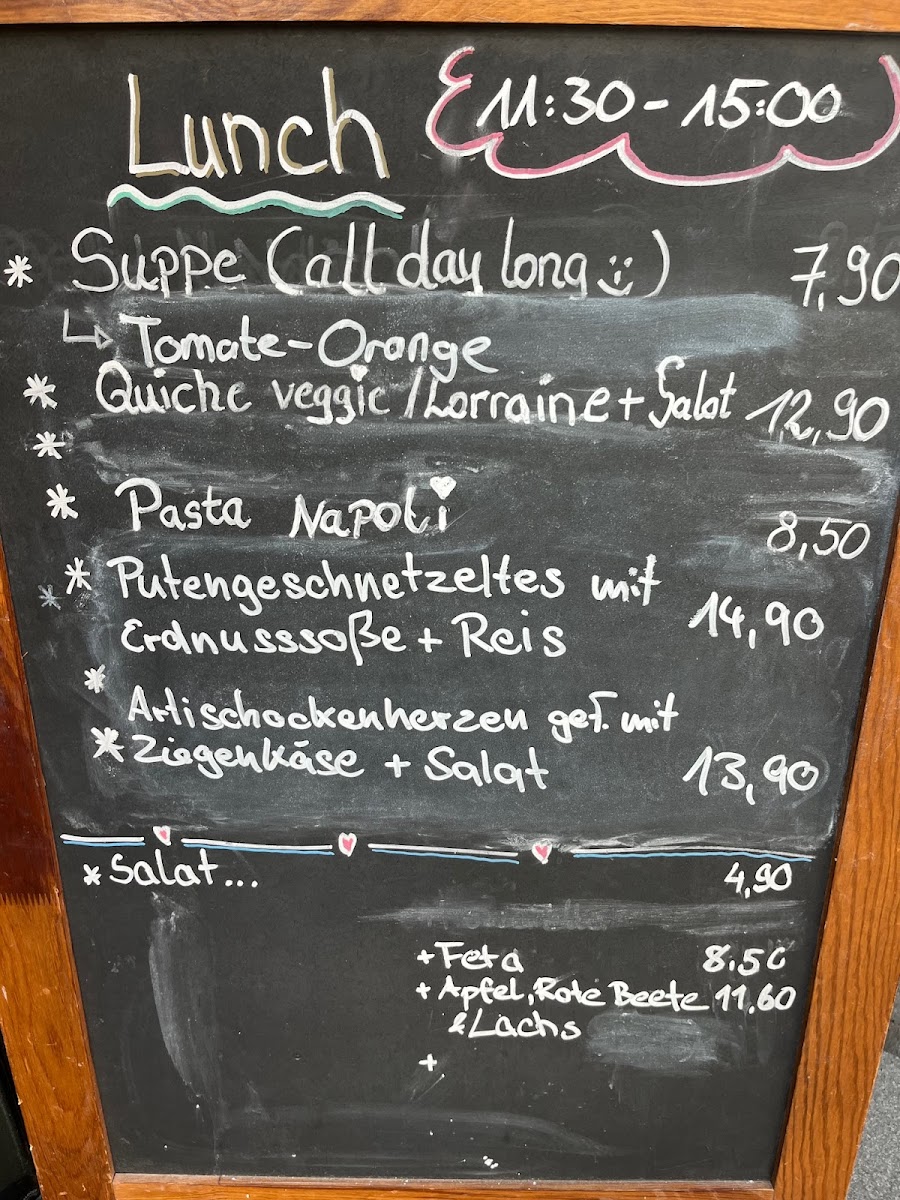 Lunch 11:30 - 15:00
* Suppe (all day long :) 7,90
↳ Tomate-Orange
* Quiche veggie / Lorraine + Salat 12,90
*
* Pasta Napoli 8,50
* Putengeschnetzeltes mit
Erdnusssoße + Reis 14,90
*
Artischockenherzen gef. mit
* Ziegenkäse + Salat 13,90
* Salat... 4,90
+ Feta 8.50
+ Apfel, Rote Beete 11.60
& Lachs
+